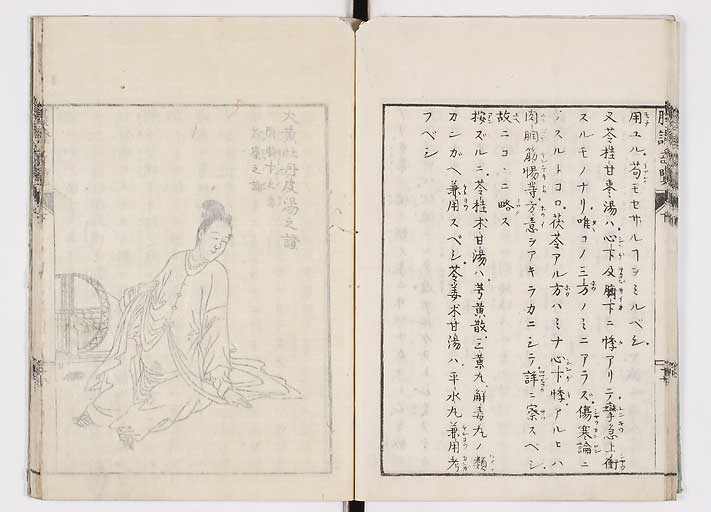 用ユル苟モセサルヿヲミルベシ
又苓桂甘棗湯ハ心下及臍下ニ悸アリテ攣急上衝
スルモノナリ唯コノ三方ノミニアラズ傷寒論ニ
スルトコロ茯苓アル方ハミナ心下悸アルヒハ
肉瞤筋惕等方意ヲアキラカニシテ詳ニ察スベシ
故ニコヽニ略ス
按ズルニ苓桂朮甘湯ハ芎黄散三黄丸解毒丸ノ類
カンガヘ兼用スベシ苓姜朮甘湯ハ平水丸兼用考
フベシ
大黄牡丹皮湯之證